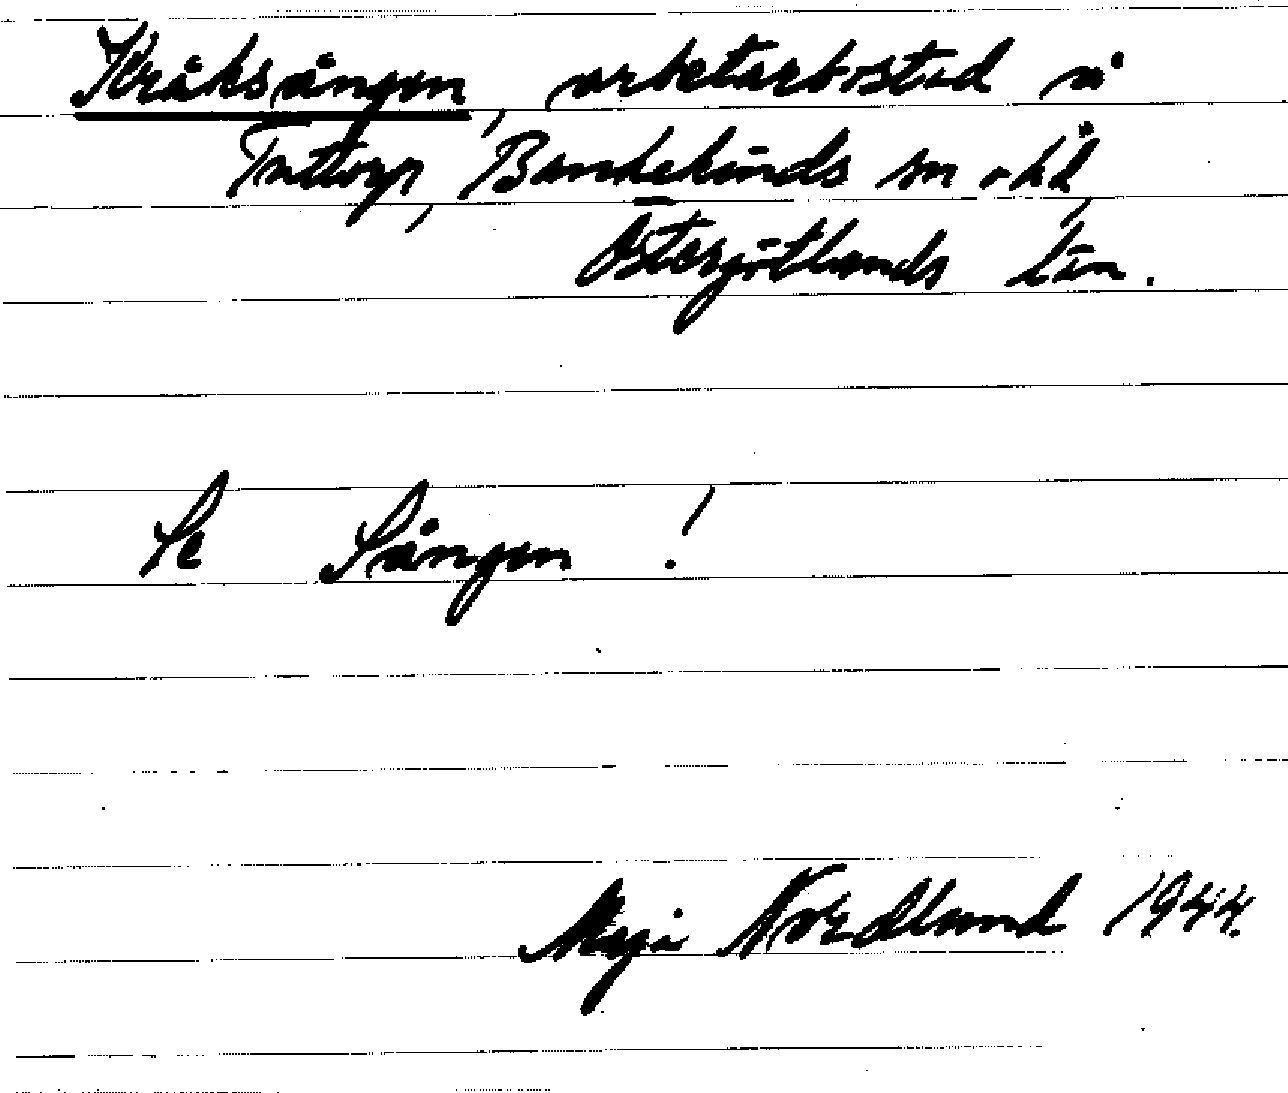 Kråksången, arbetarbostad å
Tuttorp, Bandekinds sn o. hd,
Östergötlands län.
Se Sången!
Maja Nordlund 1944.